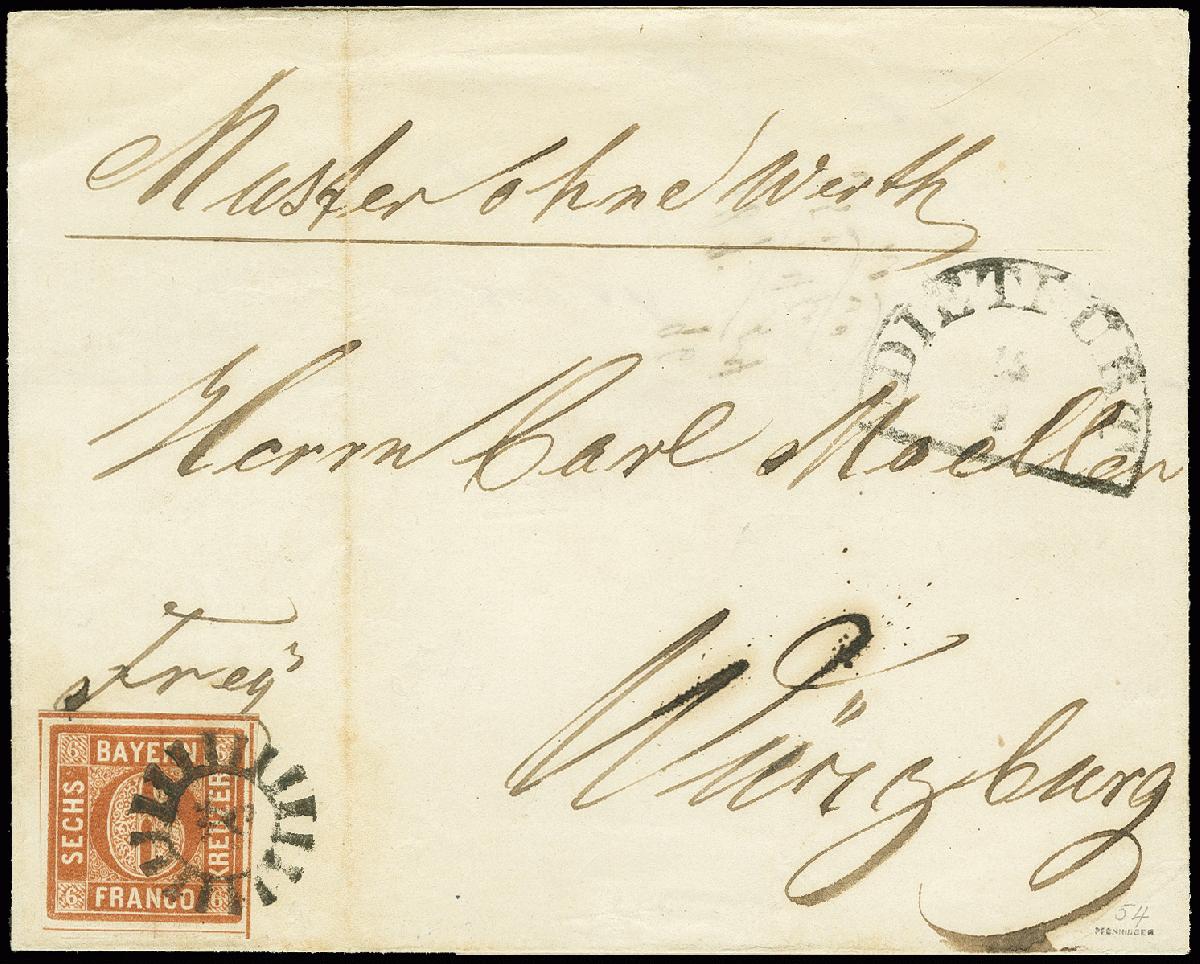 Muster ohne Werth
DIETFURT
Herrn Carl Moeller
Frey
Würzburg
6 BAYERN 6
SECHS
KREUZER
6 FRANCO 6
54
PFENNINGER